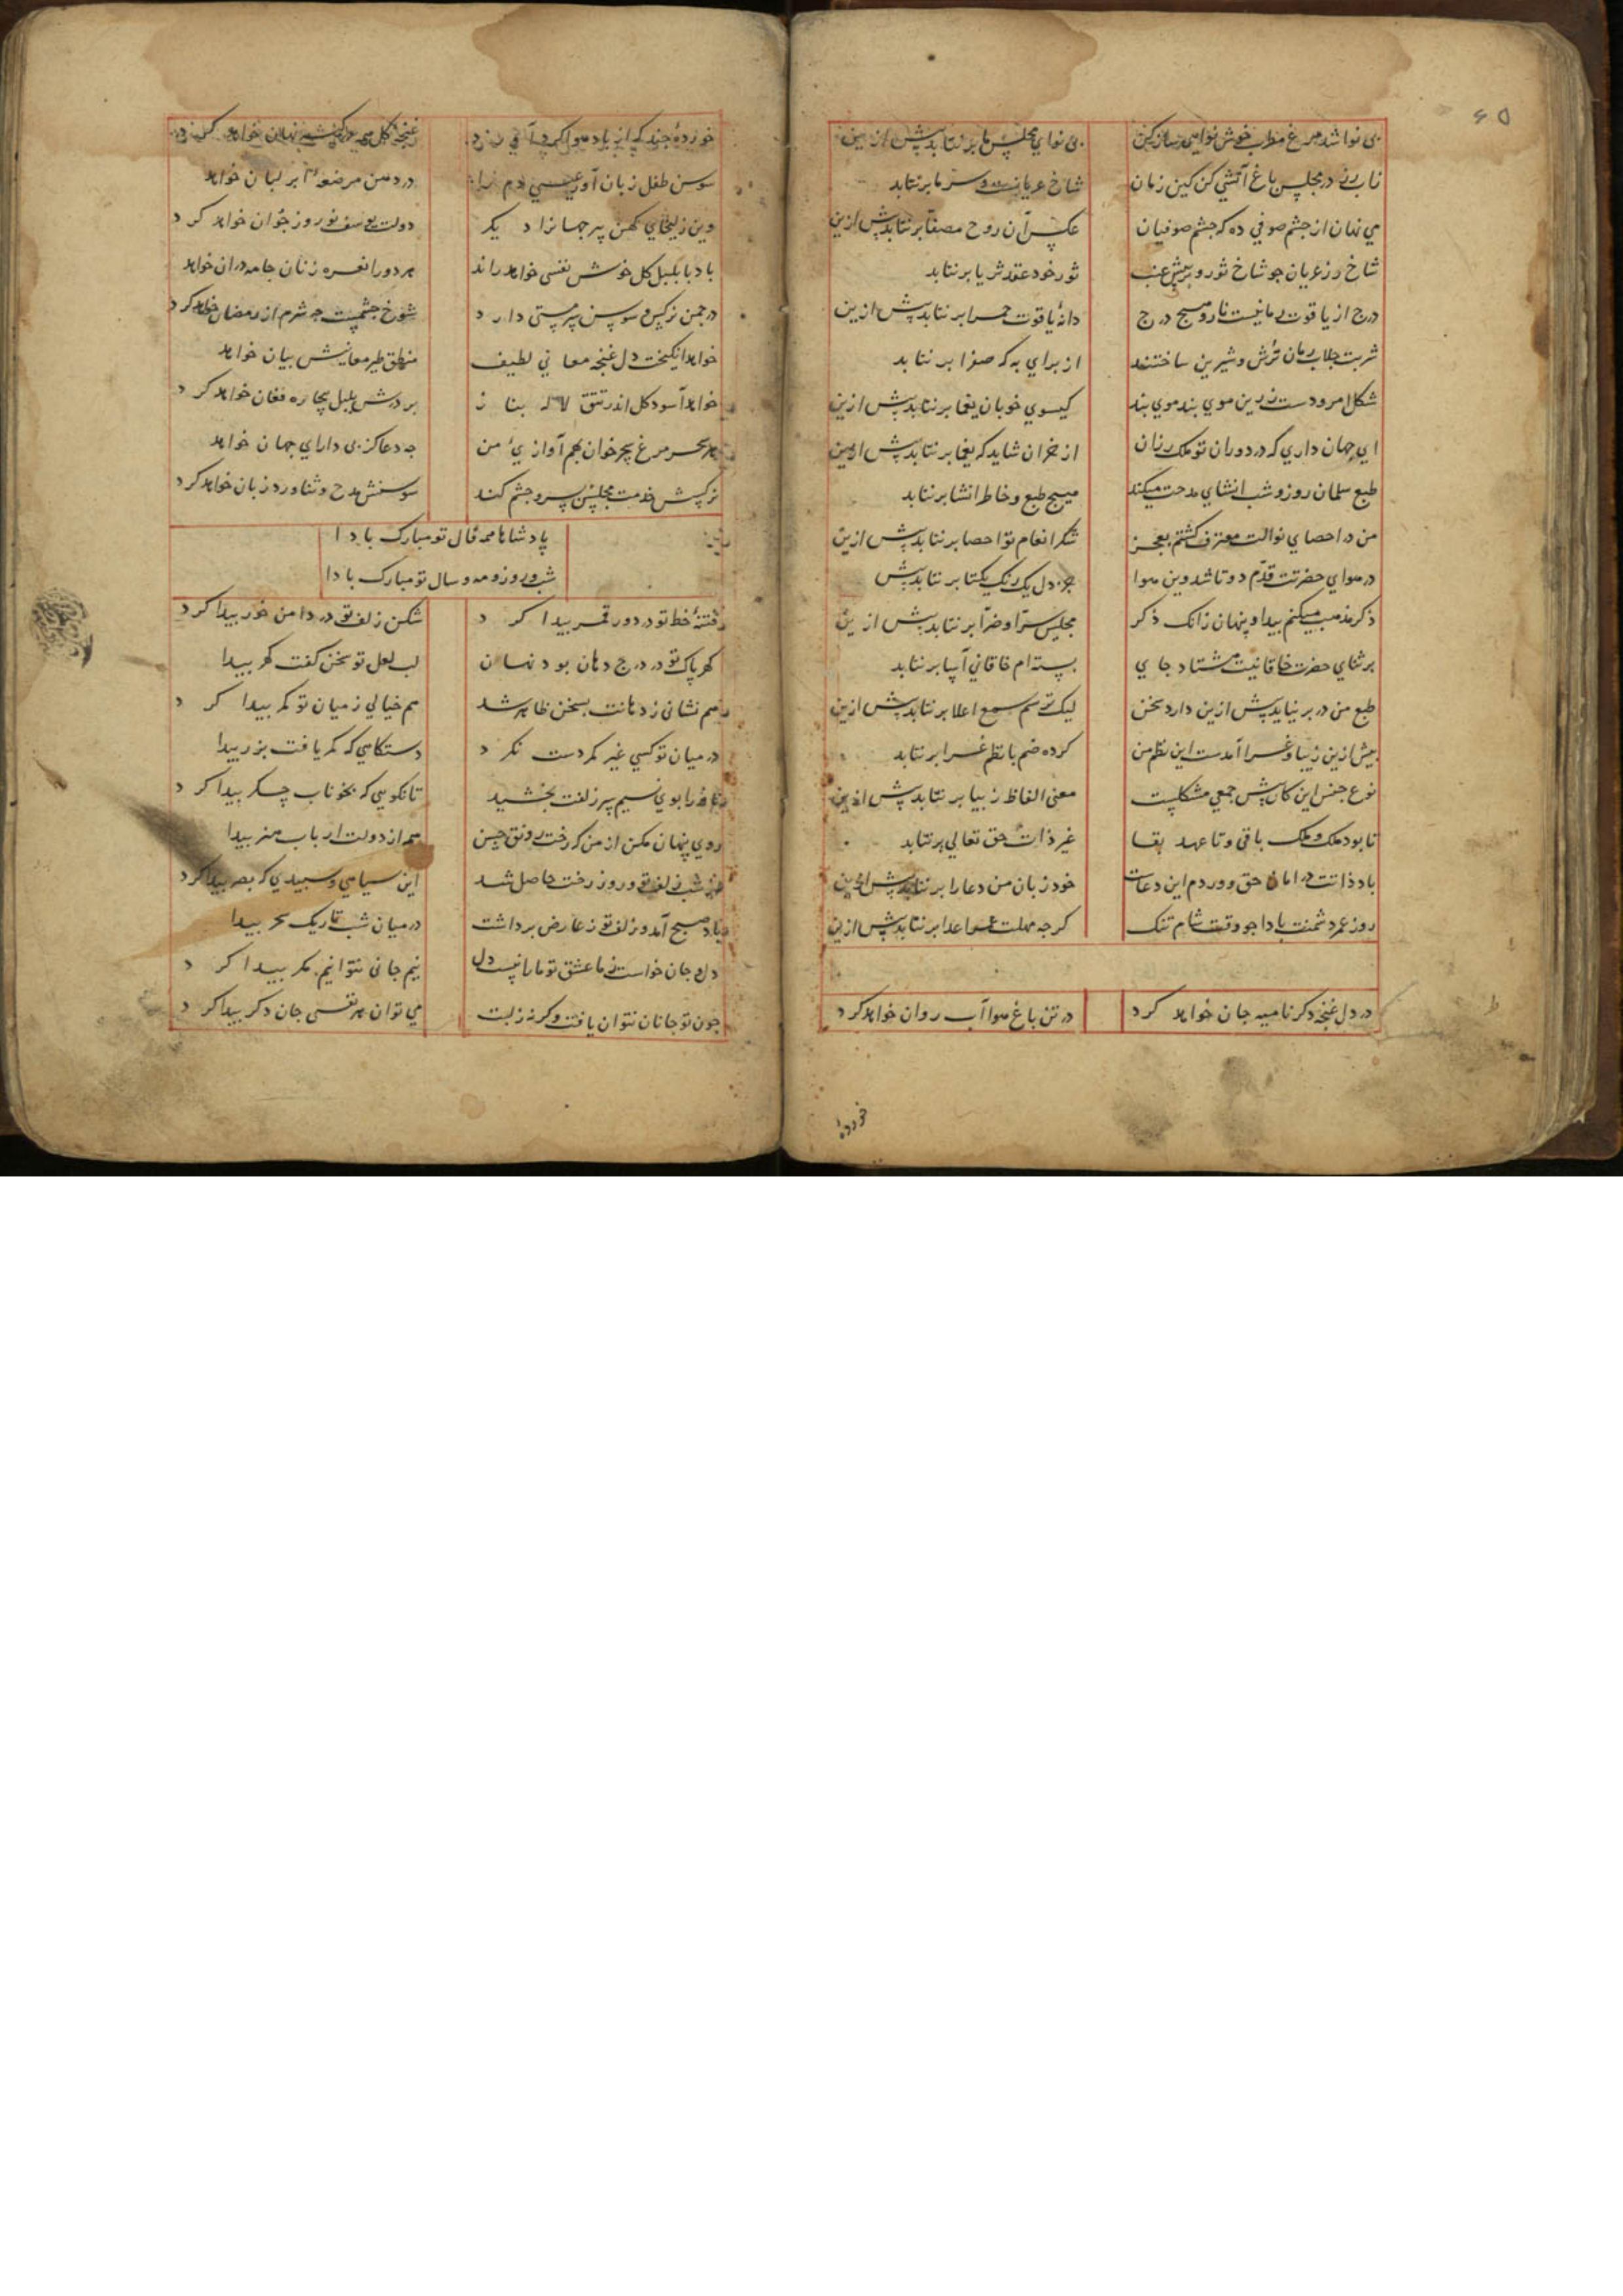 ۶۵
بی نوا شد مرغ مطرب خوش نوایی ساز کین
بی نوای مجلس ما برنتابد بیش ازین
تاب رز در مجلس باغ آتشی کن کین زمان
شاخ عریانست و سرما برنتابد
می نهان از چشم صوفی ده که چشم صوفیان
عکس آن روح مصفا برنتابد بیش ازین
شاخ رز عریان جو شاخ ثور و بر پیش عنب
ثور خود عقد ثریا برنتابد
درج از یاقوت رمانیست نار و سیج درج
دانه یاقوت حمرا برنتابد بیش ازین
شربت جلاب رمان ترش و شیرین ساختند
از برای به که صفرا برنتابد
شکل امرودست زرین موی بند موی بند
کیسوی خوبان یغما برنتابد بیش ازین
ای جهان داری که در دوران تو ملک رزان
از خزان شاید که یغما برنتابد بیش ازین
طبع سلمان روز و شب انشای مدحت میکند
هیچ طبع و خاطر انشا برنتابد
من در احصای نوالت معترف کشتم بعجز
شکر انعام تو احصا برنتابد بیش ازین
در هوای حضرتت قدم دوتا شد وین هوا
جز دل یک رنک یکتا برنتابد بیش
ذکر مذهب میکنم پیدا و پنهان زانک ذکر
مجلس سرا و ضرا برنتابد بیش ازین
بر ثنای حضرت خاقانیت هشتاد جای
بسته ام خاقانی آسا برنتابد
طبع من در بر نیاید بیش ازین دارد سخن
لیک ترسم سمع اعلا برنتابد بیش ازین
بیش ازین زیبا و غرا آمدست این نظم من
کرده ضم با نظم غرا برنتابد
نوع جنس این کان پیش جمعی مشکلیست
معنی الفاظ زیبا برنتابد بیش ازین
تا بود ملک و ملک باقی و تا عهد بقا
غیر ذات حق تعالی برنتابد
باد ذاتت در امان حق و وردم این دعاست
خود زبان من دعا را برنتابد بیش ازین
روز عمر دشمنت بادا جو وقت شام تنک
کرجه مهلت عمر اعدا برنتابد بیش ازین
در دل غنجه دکر نامیه جان خواهد کرد
در تن باغ هوا آب روان خواهد کرد
خورده
خورده جند که از باد هوا کرد آن
غنجه کل نهان خواهد کرد
سوسن طفل زبان آور عیسی دم را
در دهن مرضعه ابر لبان خواهد
وین زلیخای کهن پیر جهانرا دیکر
دولت یوسف نوروز جوان خواهد کرد
باد با بلبل کل خوش نفسی خواهد راند
هر دو را نعره زنان جامه دران خواهد
در جمن نرکس و سوسن سر مستی دارد
شوخ جشمیست جه شرم از رمضان خواهد کرد
خواهد انکیخت دل غنجه معانی لطیف
منطق طیر معانیش بیان خواهد
خواهد آسود کل اندر تتق لاله بناز
بر درش بلبل بیچاره فغان خواهد کرد
هر سحر مرغ سحر خوان بهم آوازی من
جه دعا کز بی دارای جهان خواهد
نرکسش خدمت مجلس بسر و جشم کند
سوسنش مدح و ثنا ورد زبان خواهد کرد
پادشاها همه فال تو مبارک بادا
شب و روز و مه و سال تو مبارک بادا
فتنه خط تو در دور قمر پیدا کرد
شکن زلف تو در دامن خور پیدا کرد
کهر پاک تو در درج دهان بود نهان
لب لعل تو سخن کفت کهر پیدا
هم نشانی ز دهانت بسخن ظاهر شد
هم خیالی ز میان تو کمر پیدا کرد
در میان تو کسی غیر کمر دست نکرد
دستکاهی که کمر یافت بزر پیدا
نافه را بوی نسیم سر زلفت بخشید
تا نکویی که بخوناب جکر پیدا کرد
روی پنهان مکن از من که رخت رونق حسن
هم از دولت ارباب هنر پیدا
از شب زلف تو و روز رخت حاصل شد
این سیاهی و سپیدی که بصر پیدا کرد
باد صبح آمد و زلف تو ز عارض برداشت
در میان شب تاریک سحر پیدا
دل و جان خواست ز ما عشق تو ما را نیست دل
نیم جانی نتوانیم مکر پیدا کرد
جون تو جانان نتوان یافت و کرنه زلبت
می توان هر نفسی جان دکر پیدا کرد